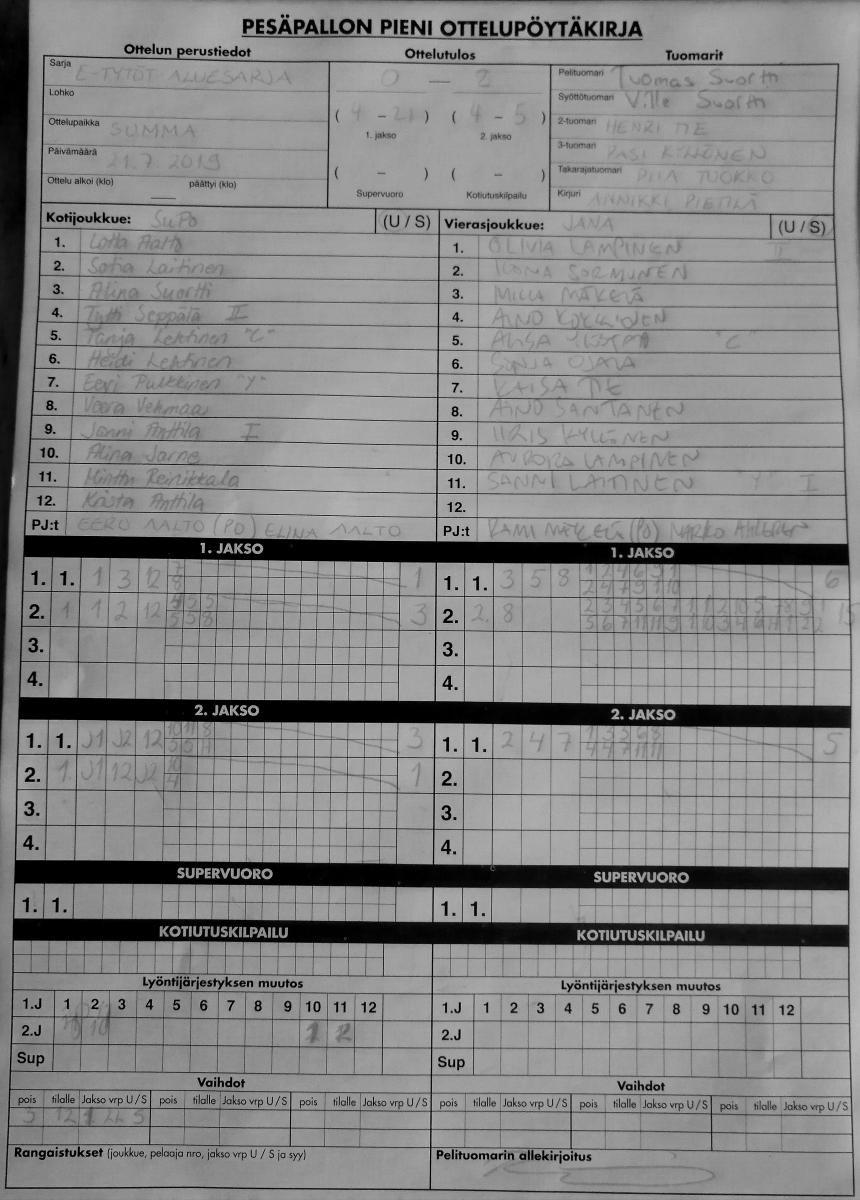 PESÄPALLON PIENI OTTELUPÖYTÄKIRJA
Ottelun perustiedot Ottelutulos Tuomarit
Sarja E-TYTÖT ALUESARJA
Lohko
Ottelupaikka SUMMA
Päivämäärä 21.7.2019
Ottelu alkoi (klo) — päättyi (klo)
0 — 2
( 4 - 21 ) ( 4 - 5 )
1. jakso 2. jakso
( - ) ( - )
Supervuoro Kotiutuskilpailu
Pelituomari Tuomas Suortti
Syöttötuomari Ville Suortti
2-tuomari HENRI TIE
3-tuomari PASI KYLLÖNEN
Takarajatuomari PIIA TUOKKO
Kirjuri ANNIKKI PIETILÄ
Kotijoukkue: SuPo (U / S)
1. Lotta Aalto
2. Sofia Laitinen
3. Alina Suortti
4. Tytti Seppälä II
5. Tanja Lehtinen "C"
6. Heidi Lehtinen
7. Eevi Pulkkinen "Y"
8. Veera Vehmaa
9. Janni Anttila I
10. Alina Jarne
11. Minttu Reinikkala
12. Krista Anttila
PJ:t EERO AALTO (PO) ELINA AALTO
Vierasjoukkue: JANA (U / S)
1. OLIVIA LAMPINEN II
2. ILONA SORMUNEN
3. MILLA MÄKELÄ
4. AINO KOKKONEN
5. "C"
6. SONJA OJALA
7. KAISA TIE
8. AINO SANTANEN
9. IIRIS KYLLÖNEN
10. AURORA LAMPINEN
11. SANNI LAITINEN "Y" I
12.
PJ:t RAMI MÄKELÄ (PO) MARKO
1. JAKSO
1. 1. 1 3 12 7 1
8
2. 1 1 2 12 4 5 5 3
5 5 8
3.
4.
1. JAKSO
1. 1. 3 5 8 1 2 4 6 9 1 6
2 4 7 9 1 10
2. 2. 8 15
3.
4.
2. JAKSO
1. 1. J1 J2 12 10 11 8 3
2. 1. J1 12 J2 10 1
4
3.
4.
2. JAKSO
1. 1. 2 4 7 1 3 5 6 8 5
4 4 7 11 11
2.
3.
4.
SUPERVUORO
1. 1.
SUPERVUORO
1. 1.
KOTIUTUSKILPAILU
KOTIUTUSKILPAILU
Lyöntijärjestyksen muutos
1.J 1 2 3 4 5 6 7 8 9 10 11 12
2.J 1 2
Sup
Lyöntijärjestyksen muutos
1.J 1 2 3 4 5 6 7 8 9 10 11 12
2.J
Sup
Vaihdot
pois tilalle Jakso vrp U / S pois tilalle Jakso vrp U / S pois tilalle Jakso vrp U / S
3 12 1
Vaihdot
pois tilalle Jakso vrp U / S pois tilalle Jakso vrp U / S pois tilalle Jakso vrp U / S
Rangaistukset (joukkue, pelaaja nro, jakso vrp U / S ja syy)
Pelituomarin allekirjoitus